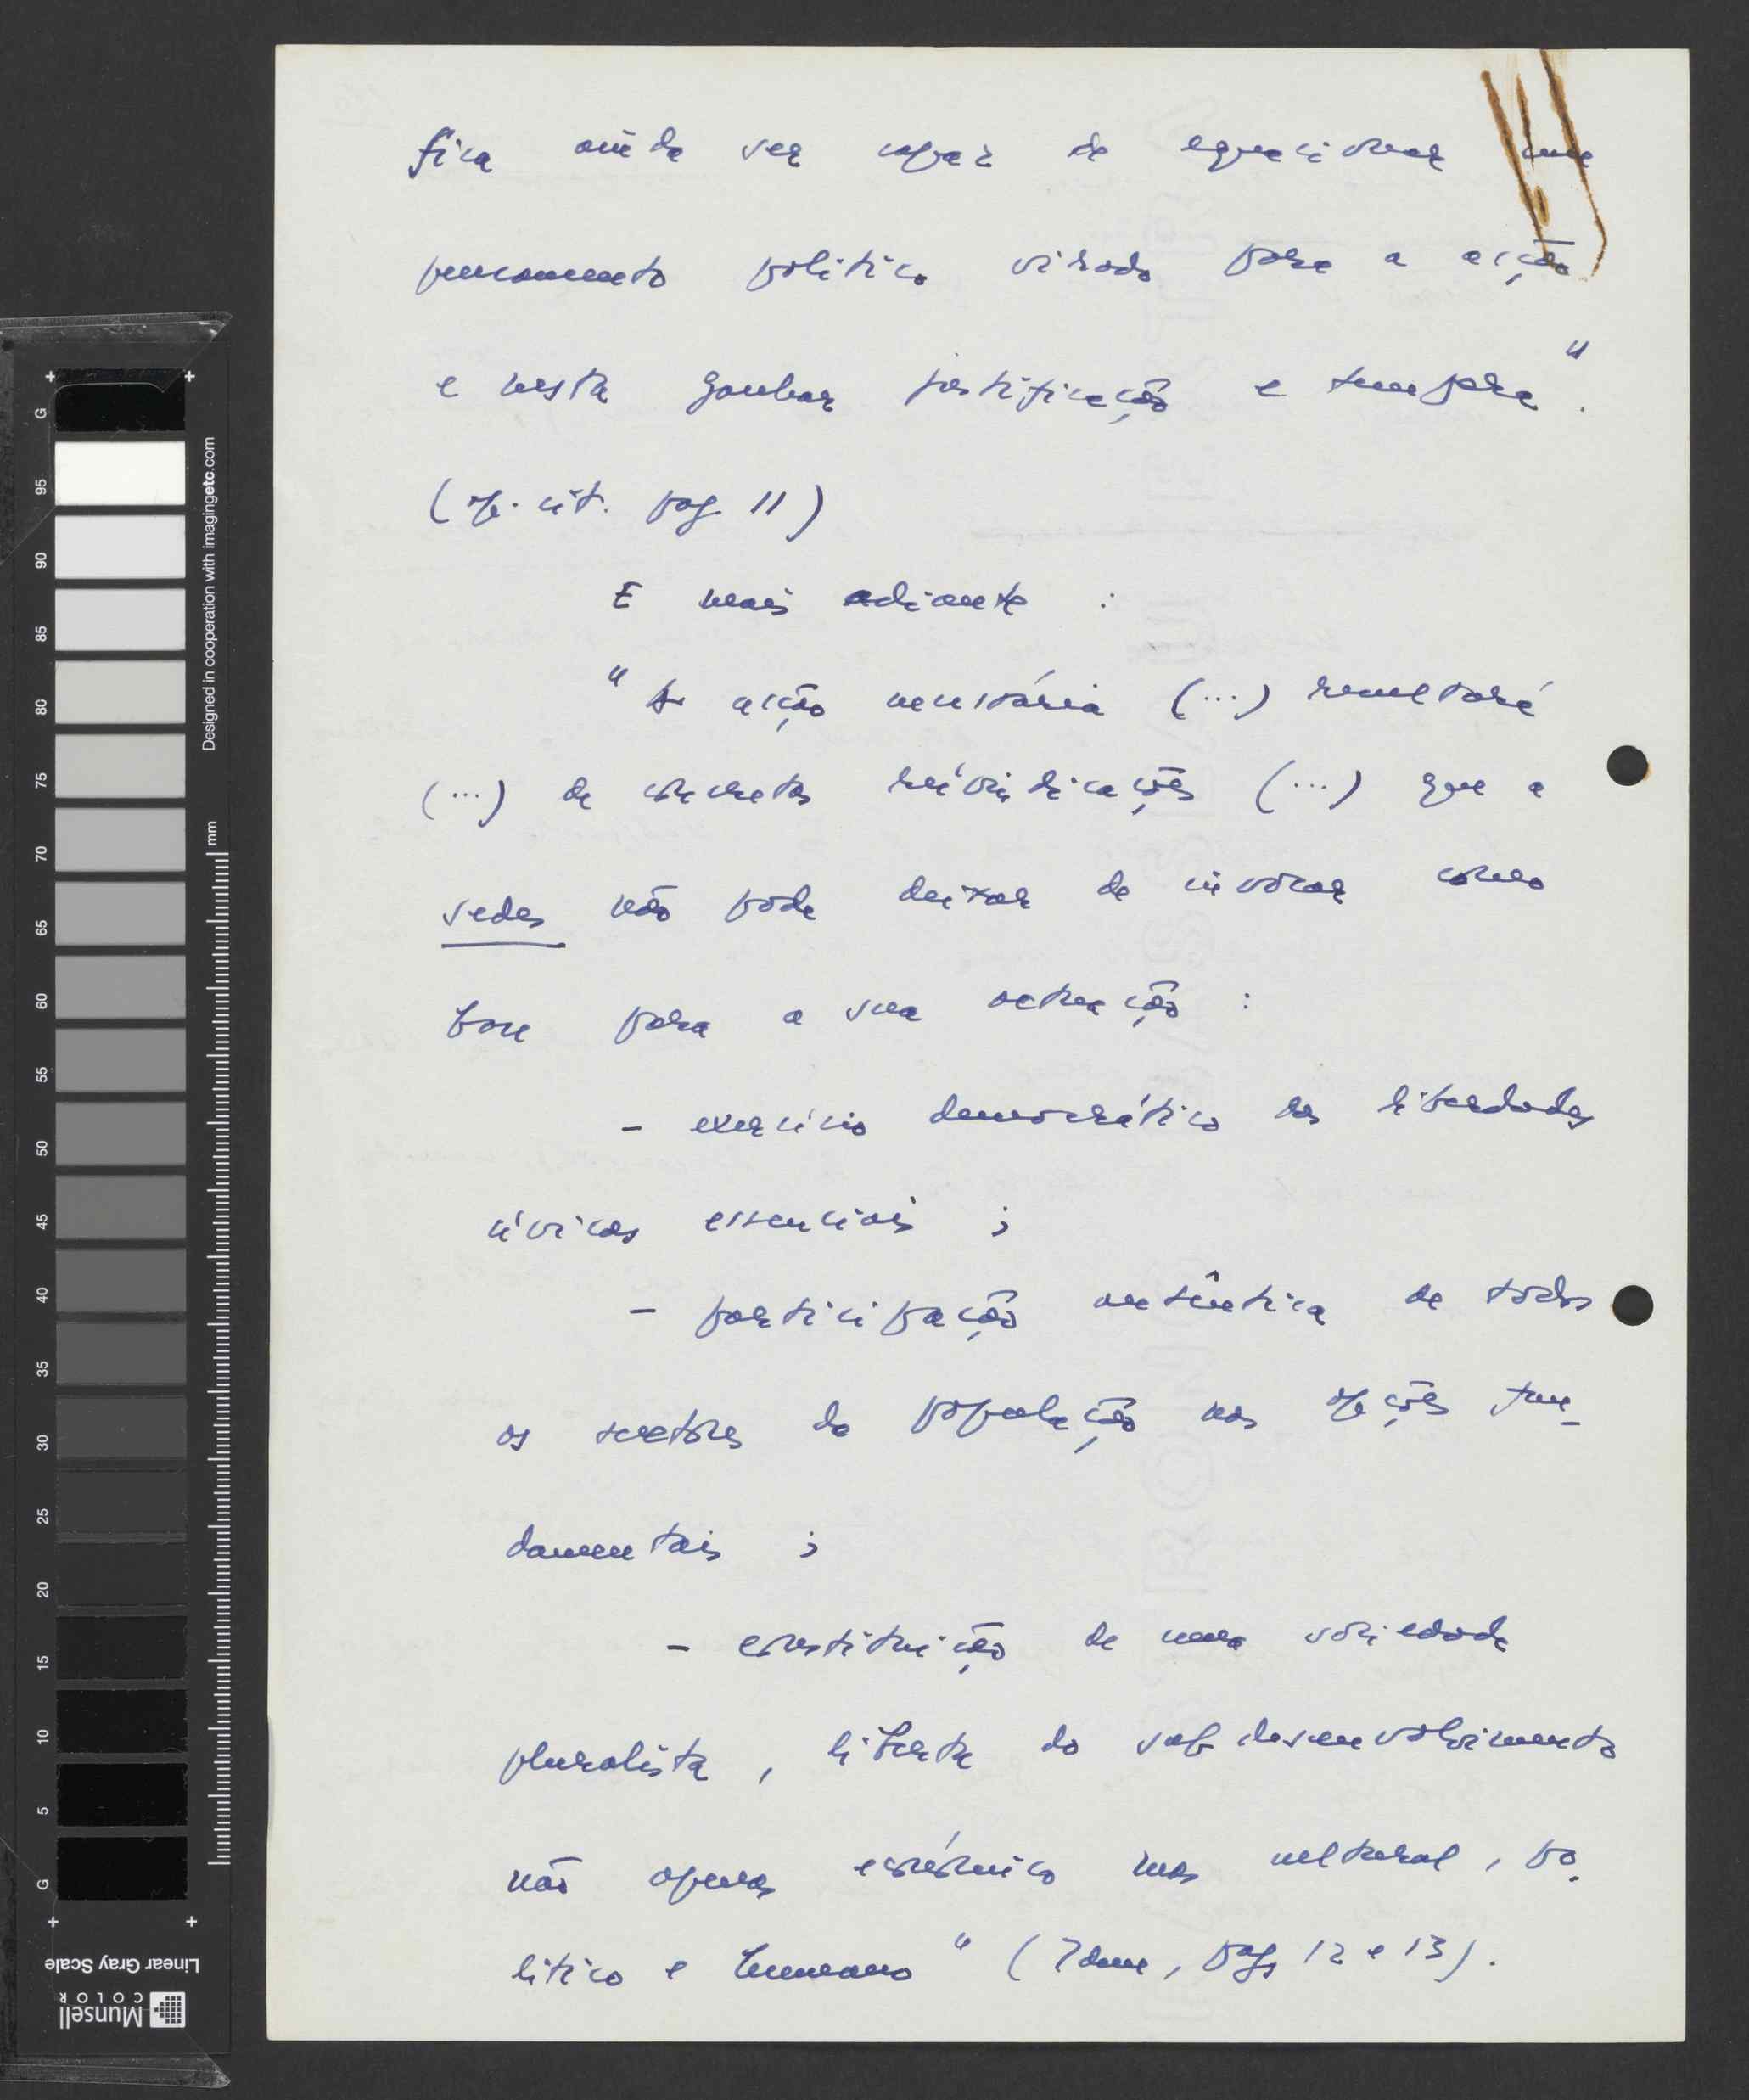 fica ainda ser capaz de equacionar um
pensamento político virado para a acção
e nesta ganhar justificação e tempera".
(op. cit. pag. 11)
E mais adiante :
" A acção necessária (...) resultará
(...) de concretas reivindicações (...) que a
sedes não pode deixar de invocar como
base para a sua actuação :
- exercício democrático das liberdades
cívicas essenciais ;
- participação autêntica de todos
os sectores da população nas opções fun-
damentais ;
- constituição de uma sociedade
pluralista, liberta do subdesenvolvimento
não apenas económico mas cultural, po-
lítico e humano " (Idem, pag, 12 e 13).
Designed in cooperation with imagingetc.com
mm
G 95 90 85 80 75 70 65 60 55 50 45 40 35 30 25 20 15 10 5 G
Linear Gray Scale
Munsell
COLOR